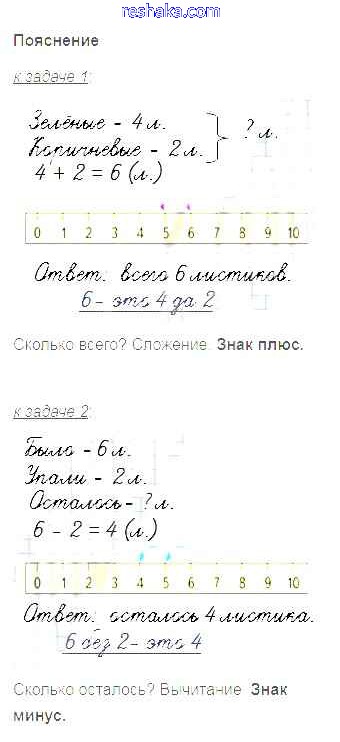 reshaka.com
Пояснение
к задаче 1:
Зелёные - 4 л.
Коричневые - 2 л.
? л.
4 + 2 = 6 (л.)
0 1 2 3 4 5 6 7 8 9 10
Ответ: всего 6 листиков.
6 - это 4 да 2
Сколько всего? Сложение. Знак плюс.
к задаче 2:
Было - 6 л.
Упали - 2 л.
Осталось - ? л.
6 - 2 = 4 (л.)
0 1 2 3 4 5 6 7 8 9 10
Ответ: осталось 4 листика.
6 без 2 - это 4
Сколько осталось? Вычитание. Знак
минус.